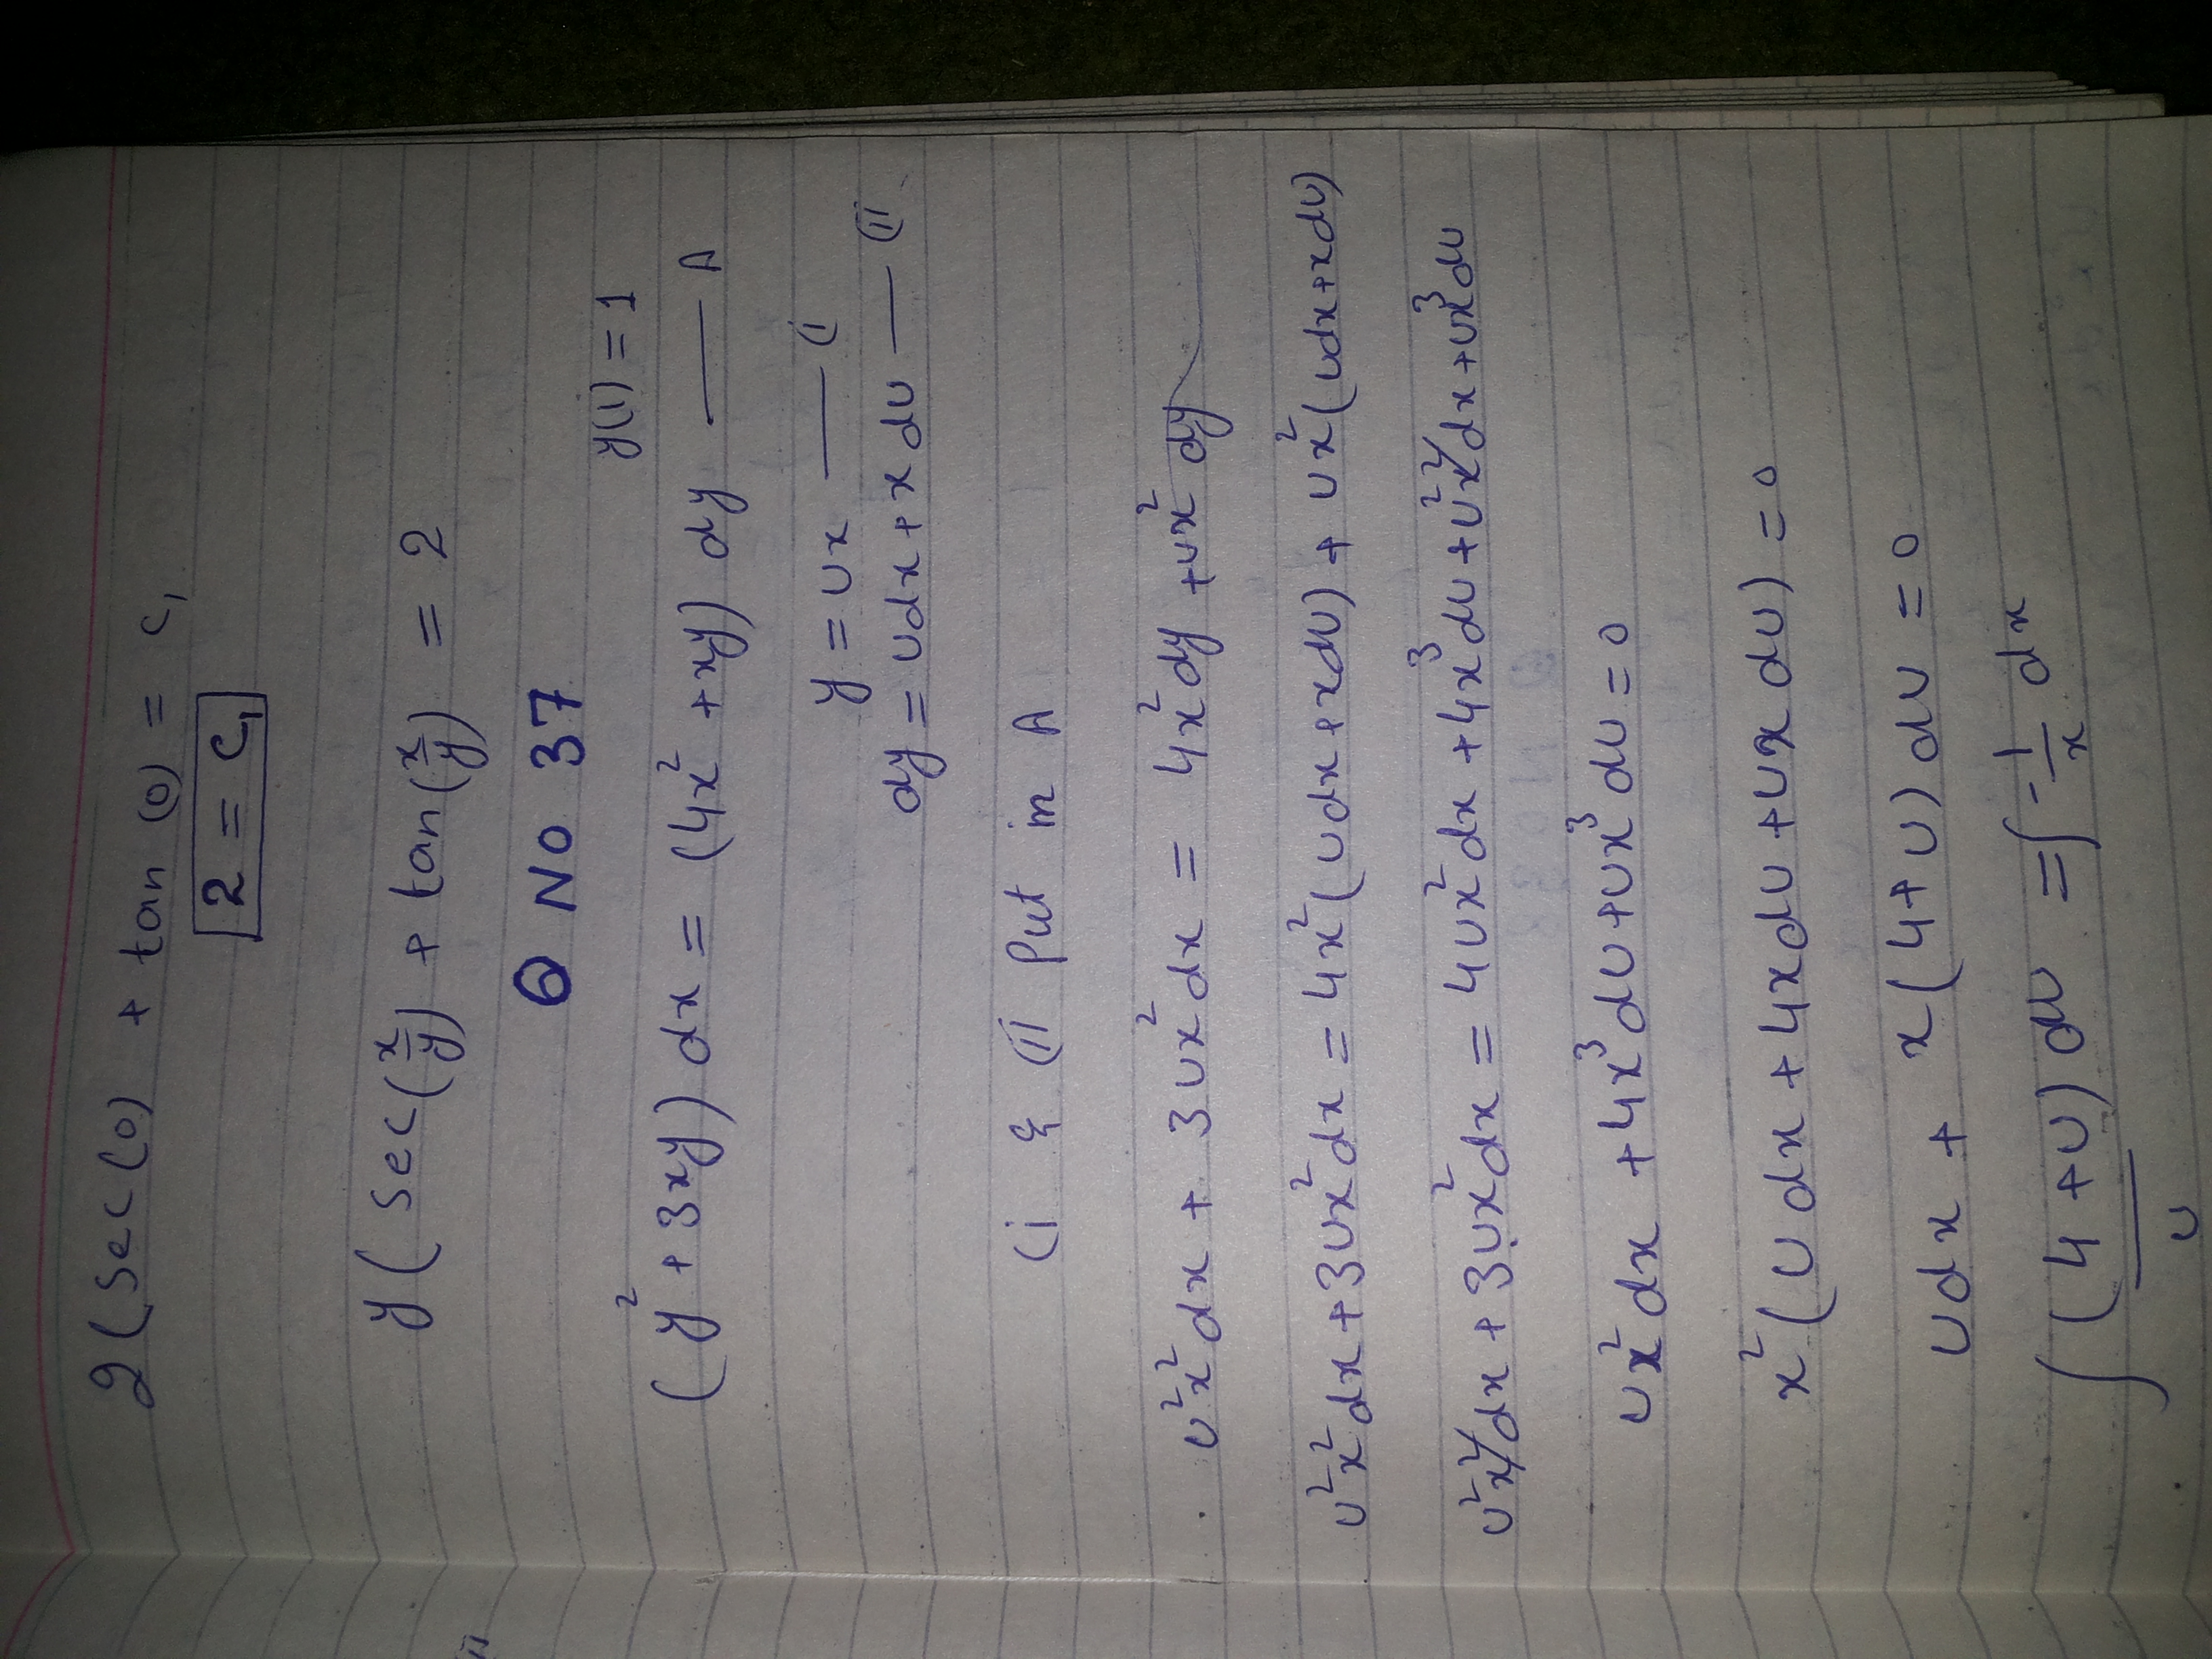 2(sec(0) + tan(0) = c₁
2 = c₁
y(sec(x/y) + tan(x/y) = 2
Q NO 37
y(1) = 1
(y² + 3xy) dx = (4x² + xy) dy — A
y = ux — (i
dy = udx + x du — (ii
(i & (ii Put in A
u²x²dx + 3ux²dx = 4x²dy + ux² dy
u²x²dx + 3ux²dx = 4x²(udx + xdu) + ux²(udx + xdu)
u²x²dx + 3ux²dx = 4ux²dx + 4x³du + u²x²dx + ux³du
ux²dx + 4x³du + ux³du = 0
x²(u dx + 4xdu + ux du) = 0
udx + x(4+u) du = 0
∫ (4+u)/u du = ∫ -1/x dx